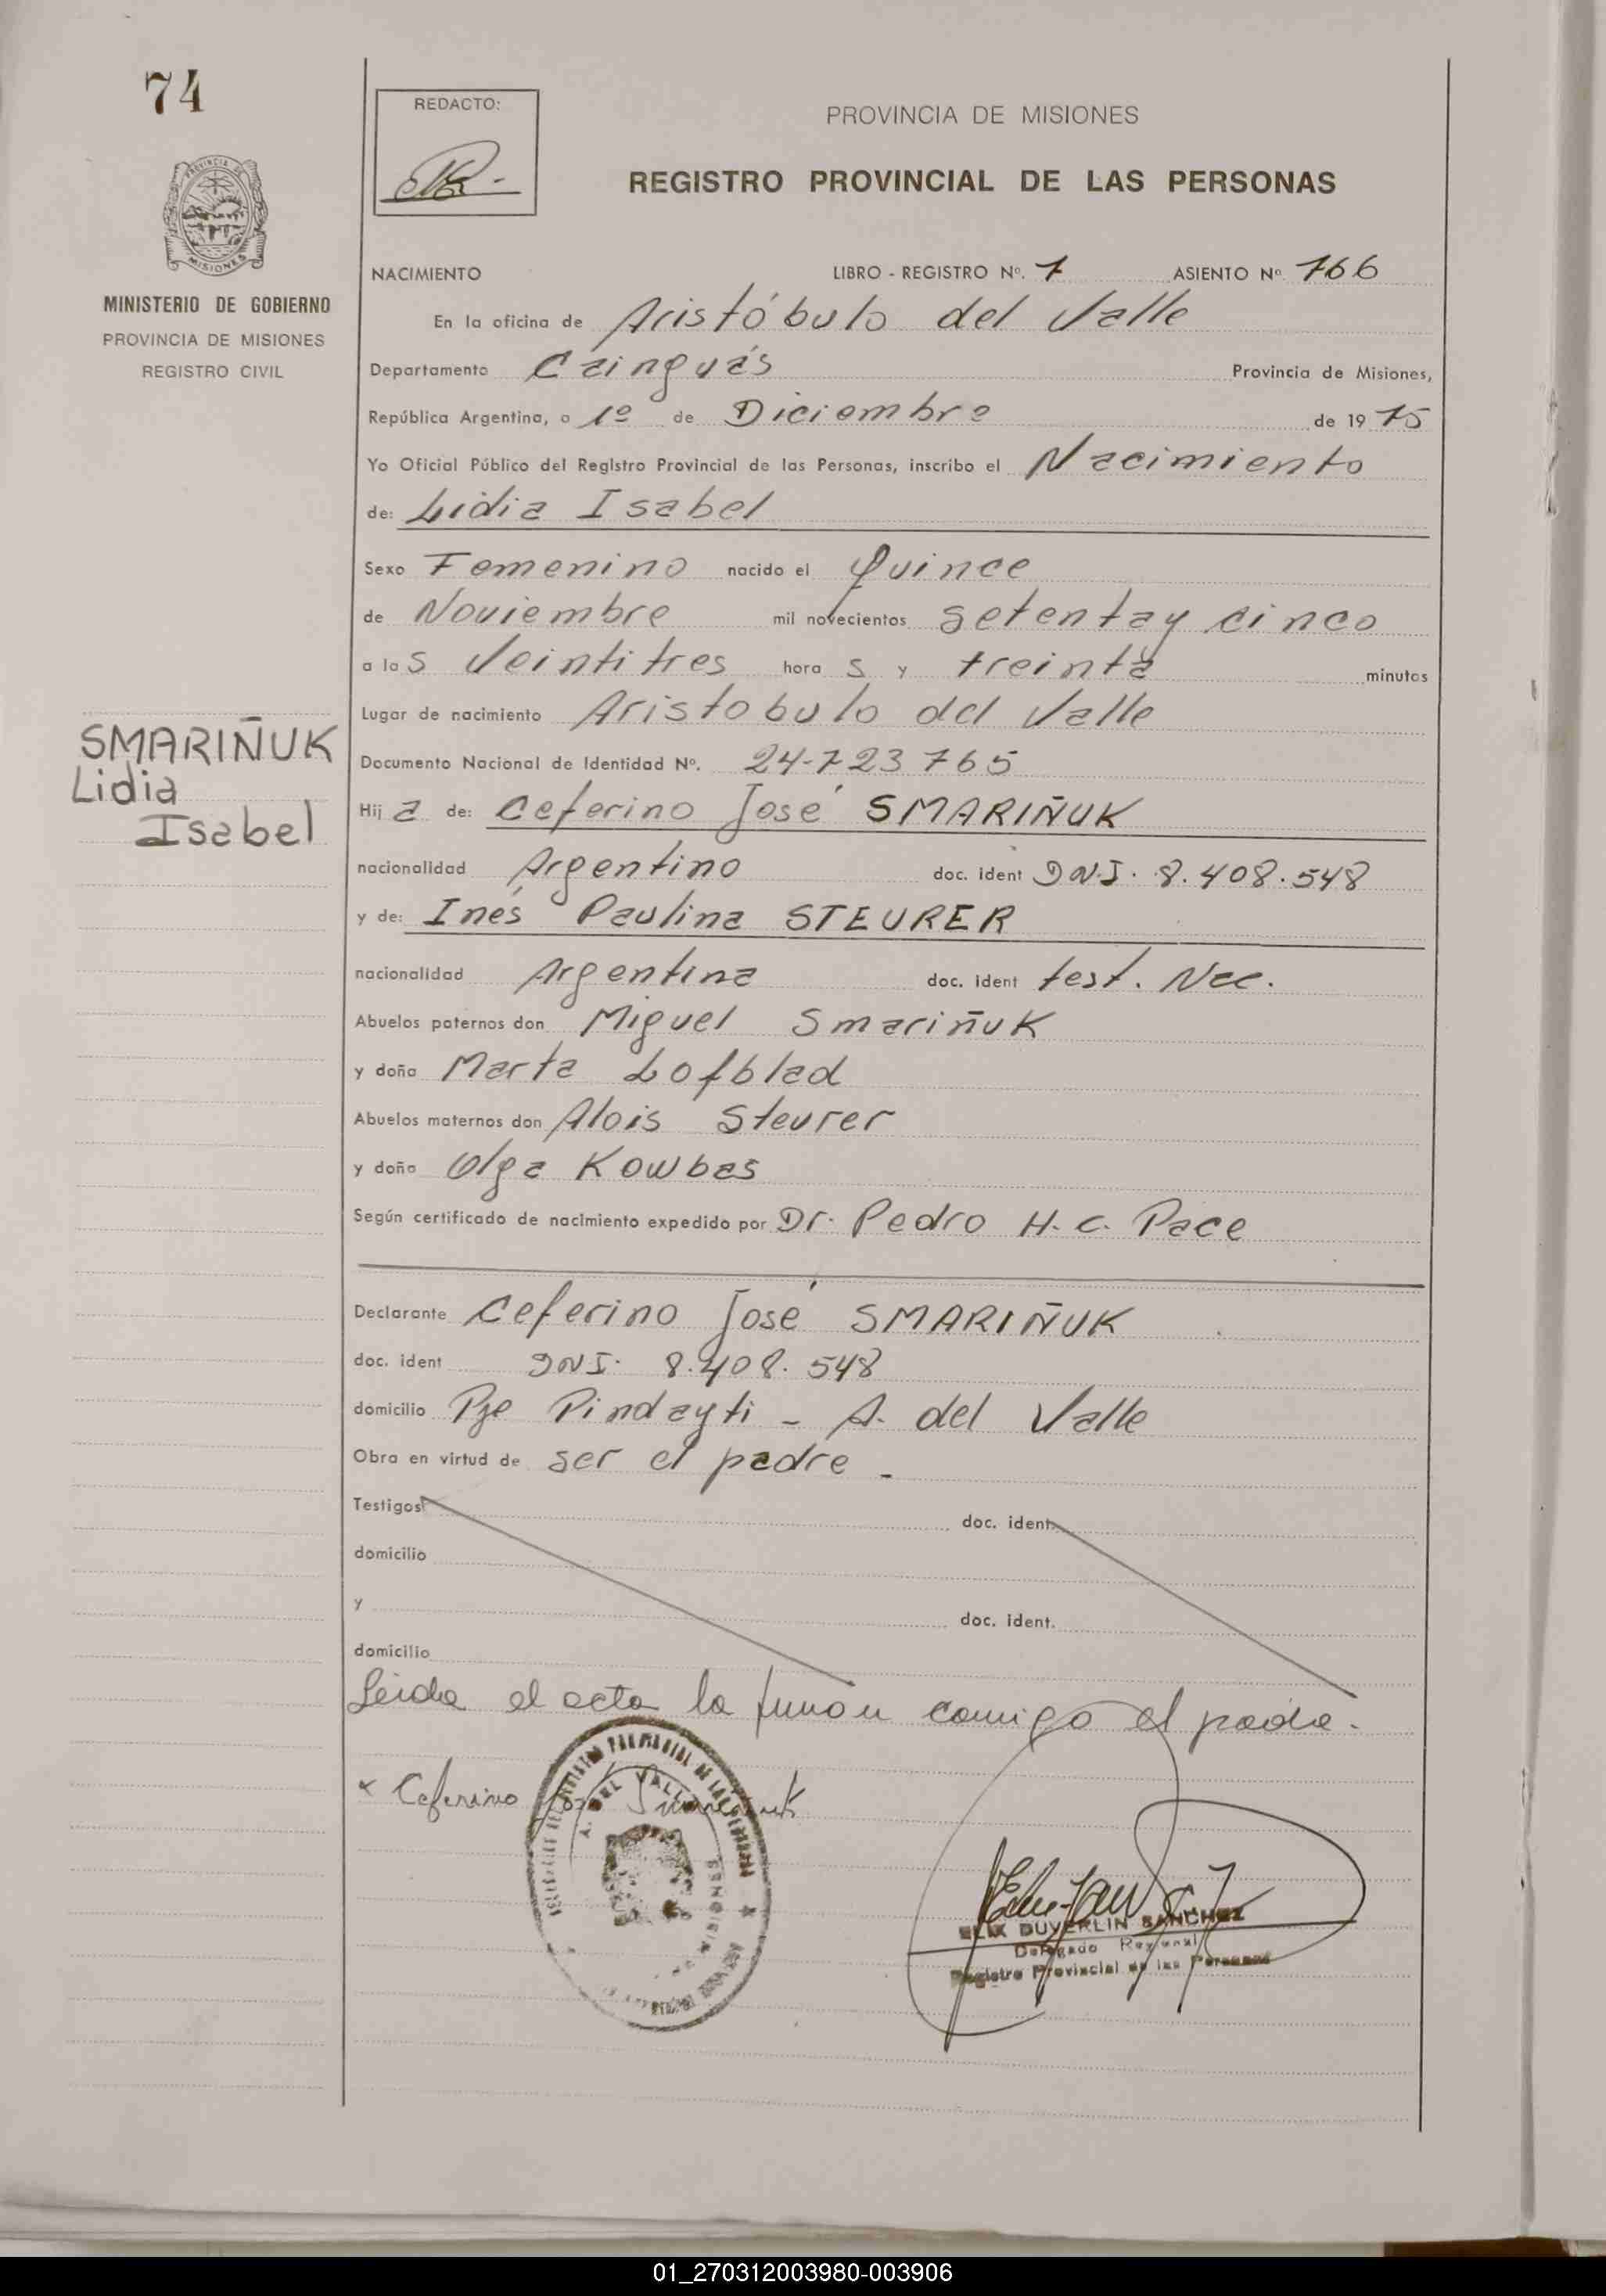 74
REDACTO:
PROVINCIA DE MISIONES
REGISTRO PROVINCIAL DE LAS PERSONAS
PROVINCIA DE
MISIONES
MINISTERIO DE GOBIERNO
PROVINCIA DE MISIONES
REGISTRO CIVIL
NACIMIENTO LIBRO - REGISTRO Nº. 7 ASIENTO Nº 766
En la oficina de Aristóbulo del Valle
Departamento Cainguás Provincia de Misiones,
República Argentina, a 1º de Diciembre de 1975
Yo Oficial Público del Registro Provincial de las Personas, inscribo el Nacimiento
de: Lidia Isabel
Sexo Femenino nacido el Quince
de Noviembre mil novecientos setenta y cinco
a las Veintitres horas y treinta minutos
Lugar de nacimiento Aristobulo del Valle
SMARIÑUK
Lidia
Isabel
Documento Nacional de Identidad Nº. 24-723765
Hija de: Ceferino José SMARIÑUK
nacionalidad Argentino doc. ident D.N.I. 8.408.548
y de: Inés Paulina STEURER
nacionalidad Argentina doc. ident test. Nac.
Abuelos paternos don Miguel Smariñuk
y doña Marta Lofblad
Abuelos maternos don Alois Steurer
y doña Olga Kowbas
Según certificado de nacimiento expedido por Dr. Pedro H. C. Pace
Declarante Ceferino José SMARIÑUK
doc. ident DNI. 8.408.548
domicilio Pje Pindayti - A. del Valle
Obra en virtud de ser el padre -
Testigos doc. ident.
domicilio
y doc. ident.
domicilio
Leida el acta la firman comigo el padre.
x Ceferino José Smariñuk
A. DEL VALLE
MISIONES
ELIX DUVERLIN SANCHEZ
Delegado Regional
Registro Provincial de las Personas
01_270312003980-003906